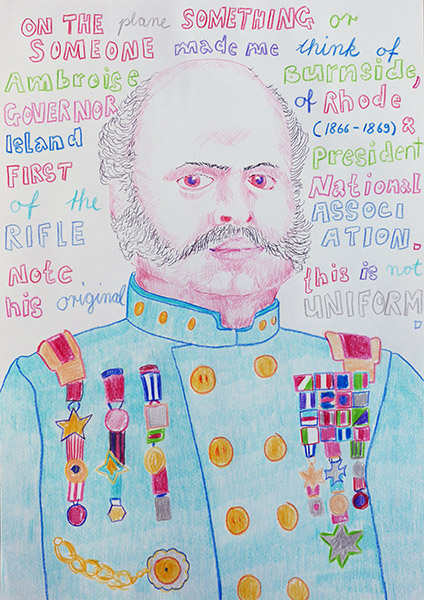 ON THE plane SOMETHING or
SOMEONE made me think of
Ambroise Burnside,
GOVERNOR of Rhode
Island (1866-1869) &
FIRST President
of the National
RIFLE ASSOCI
ATION.
Note this is not
his original UNIFORM.